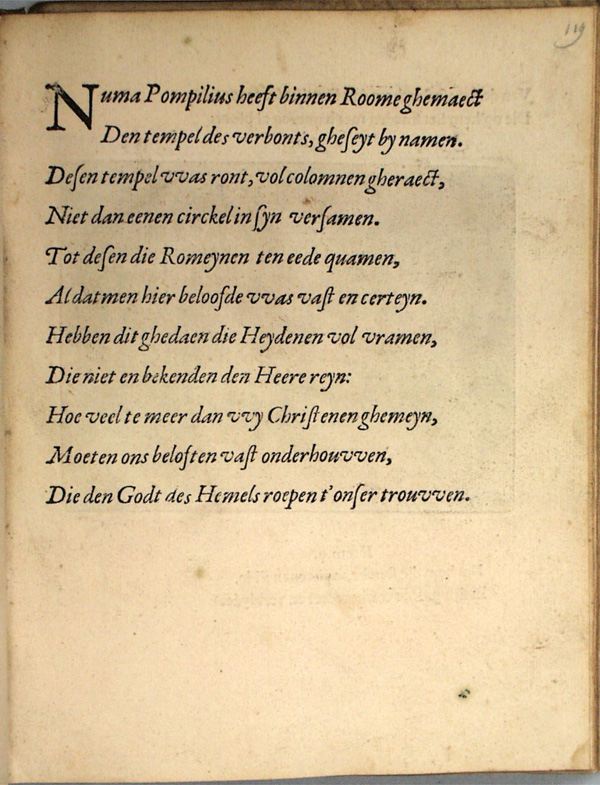 119
Numa Pompilius heeft binnen Roome ghemaect
Den tempel des verbonts, gheſeyt by namen.
Deſen tempel vvas ront, vol colomnen gheraect,
Niet dan eenen circkel in ſyn verſamen.
Tot deſen die Romeynen ten eede quamen,
Al datmen hier beloofde vvas vaſt en certeyn.
Hebben dit ghedaen die Heydenen vol vramen,
Die niet en bekenden den Heere reyn:
Hoe veel te meer dan vvy Chriſtenen ghemeyn,
Moeten ons beloften vaſt onderhouvven,
Die den Godt des Hemels roepen t'onſer trouvven.